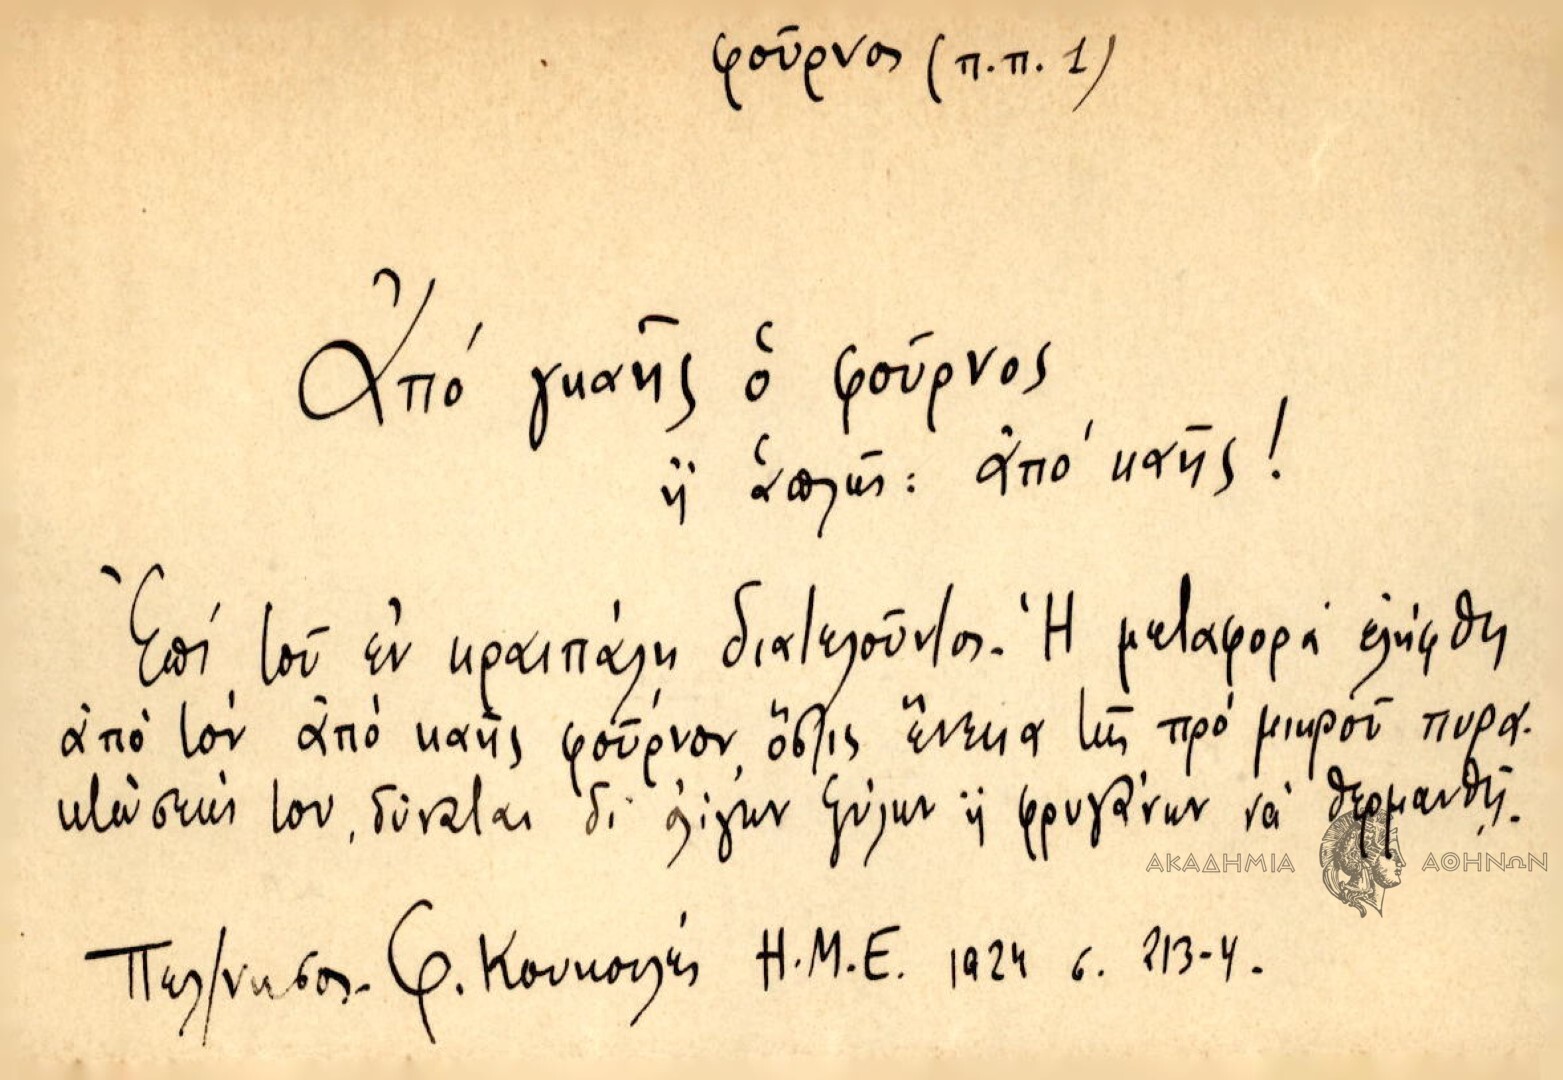 φοῦρνος (π.π. 1)
Ἀπό γκαῆς ὁ φοῦρνος
ἤ ἁπλῶς: ἀπό καῆς!
Ἐπί τοῦ ἐν κραιπάλῃ διατελοῦντος. Ἡ μεταφορά ἐλήφθη
ἀπὸ τόν ἀπό καῆς φοῦρνον, ὅστις ἕνεκα τῆς πρό μικροῦ πυρα-
κτώσεώς του, δύναται δι' ὀλίγων ξύλων ἤ φρυγάνων νά θερμανθῇ.
ΑΚΑΔΗΜΙΑ ΑΘΗΝΩΝ
Πελ/νησος. Φ. Κουκουλές Η.Μ.Ε. 1924 σ. 213-4.